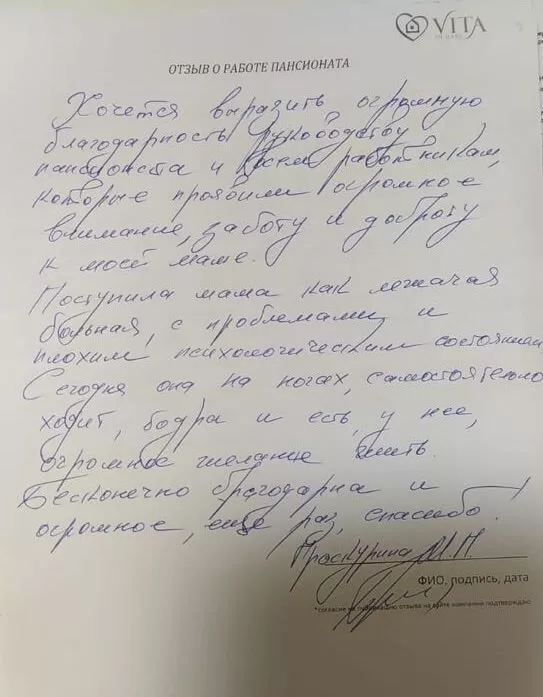 VITA
ОТЗЫВ О РАБОТЕ ПАНСИОНАТА
Хочется выразить огромную
благодарность руководству
пансионата и всем работникам,
которые проявили огромное
внимание, заботу и доброту
к моей маме.
Поступила мама как лежачая
больная, с проблемами и
плохим психологическим состоянием
Сегодня она на ногах, самостоятельно
ходит, бодра и есть, у нее,
огромное желание жить.
Бесконечно благодарна и
огромное, еще раз, спасибо.
Проскурина М.П.
ФИО, подпись, дата
*согласие на публикацию отзыва на сайте компании подтверждаю